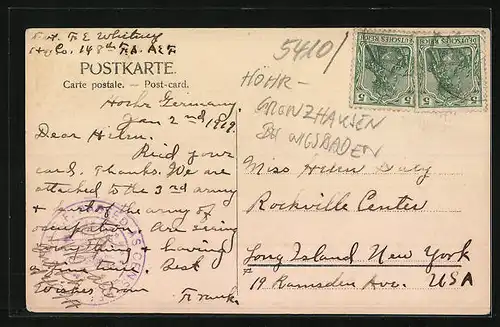 Pvt. F E Whitney
Hq Co. 148th F.A. AEF
POSTKARTE.
Carte postale. — Post-card.
Hohr Germany.
Jan 2nd 1919.
Dear Helen.
Recid your
card. Thanks. We are
attached to the 3rd army
+ part of the army of
occupation. Am seing
+ having
a fine time. Best
Wishes From
Frank.
5410/
HÖHR-
GRENZHAUSEN
BEI WIESBADEN
DEUTSCHES REICH
5 5
DEUTSCHES REICH
5 5
Miss Helen Daly
Rockville Center
Long Island New York
19 Ramsden Ave. USA